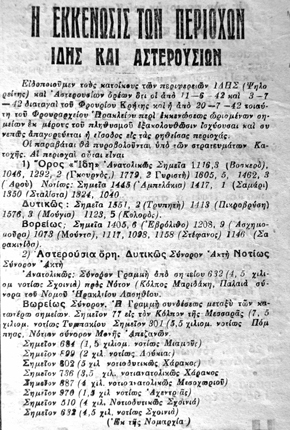 Η ΕΚΚΕΝΩΣΙΣ ΤΩΝ ΠΕΡΙΟΧΩΝ
ΙΔΗΣ ΚΑΙ ΑΣΤΕΡΟΥΣΙΩΝ
Εἰδοποιοῦμεν τοὺς κατοίκους τῶν περιφερειῶν ΙΔΗΣ (Ψηλο
ρείτης) καὶ Ἀστερουσίων ὀρέων ὅτι αἱ ἀπὸ 11-6-42 καὶ 3-7-
-42 διαταγαὶ τοῦ Φρουρίου Κρήτης καὶ ἡ ἀπὸ 20-7-42 τοιαύ-
τη τοῦ Φρουραρχείου Ἡρακλείου περὶ ἐκκενώσεως ὡρισμένων ση-
μείων ἐκ μέρους τοῦ πληθυσμοῦ ἐξακολουθοῦσιν ἰσχύουσαι καὶ συ
νεπῶς ἀπαγορεύεται ἡ εἴσοδος εἰς τὰς ρηθείσας περιοχάς.
Οἱ παραβάται θὰ πυροβολοῦνται ὑπὸ τῶν στρατευμάτων Κα-
τοχῆς. Αἱ περιοχαὶ αὗται εἶναι
1) Ὄρος «Ἴδη» Ἀνατολικῶς Σημεῖα 1116,3 (Βοσκερό)
1046, 1292, 2 (Γκουρνός) 1779, 2 Γυριστή) 1805, 5, 1462, 3
(Αροῦ) Νοτίως: Σημεῖα 1443 (Ἀμπελάκια) 1417, 1 (Σαμάρι)
1350 (Σταλίστρα) 1324, 1040.
Δυτικῶς: Σημεῖα 1351, 2 (Τρυπητή) 1413 (Πικροβρύση)
1576, 3 (Μούγια) 1123, 5 (Κολορός).
Βορείως; Σημεῖα 1405, 6 (Ἑβρόλιθο) 1208, 9 (Ἀσχημο-
μούρα) 1073 (Μούντε), 1117, 1093, 1158 (Στέφανος) 1146 (Σα
ρακινίδα).
2) Ἀστερούσια ὄρη. Δυτικῶς Σύνορον Ἀκτὴ Νοτίως
Σύνορον Ἀκτὴ
Ἀνατολικῶς: Σύνορον Γραμμὴ ἀπὸ σημείου 632 (4, 5 χιλιομ.
νοτίως Σχοινιᾶ) πρὸς Νότον (Κόλπος Μαριδάκη, Παλαιὰ σύνο
ρα τοῦ Νομοῦ Ἡρακλείου Λασηθίου.
Βορείως Σύνορον. Ἡ Γραμμὴ συνδέσεως μεταξὺ τῶν κα-
τωτέρω σημείων. Σημεῖον 77 εἰς τὸν Κόλπον τῆς Μεσσαρᾶς (7, 5
χιλιομ. νοτίως Τυμπακίου Σημεῖον 301 (3,5 χιλιομ. νοτίως Πόμ
πηας. Νότιον σύνορον Μονῆς Ἀπεζανῶν.
Σημεῖον 684 (1, 5 χιλιομ. νοτίως Μιαμοῦ)
Σημεῖον 599 (2 χιλ. νοτίως Λούκια)
Σημεῖον 802 (5 χιλ. νοτιοδυτικῶς Χάρακος)
Σημεῖον 736 (3,5 χιλ. νοτιανατολικῶς Χάρακος
Σημεῖον 887 (4 χιλ. νοτιοανατολικῶς Μεσοχωριοῦ)
Σημεῖον 970 (1,3 χιλ νοτίως Ἀχεντριᾶς)
Σημεῖον 510 (4 χιλ. Νοτιοδυτικῶς Σχοινιᾶ)
Σημεῖον 632 (4,5 χιλ. νοτίως Σχοινιᾶ)
(Ἐκ τῆς Νομαρχίας)